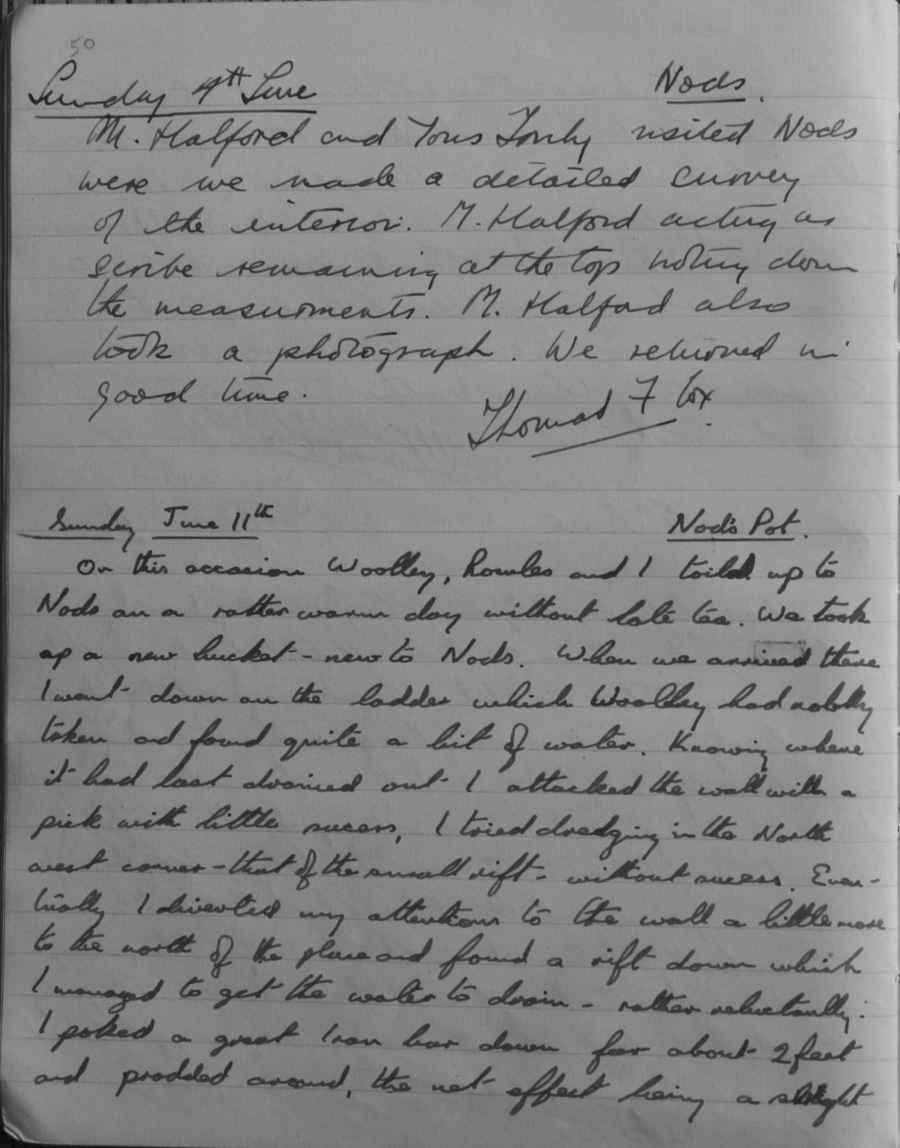 50
Sunday 4th June Nods.
M. Halford and Yours Truly visited Nods
were we made a detailed survey
of the interior. M. Halford acting as
scribe remaining at the top noting down
the measurments. M. Halford also
took a photograph. We returned in
good time.
Thomas F Cox.
Sunday June 11th Nod's Pot.
On this occasion Woolley, Rowles and I toiled up to
Nods on a rather warm day without late tea. We took
up a new bucket - new to Nods. When we arrived there
I went down on the ladder which Woolley had nobly
taken and found quite a bit of water. Knowing where
it had last drained out I attacked the wall with a
pick with little success, I tried dredging in the North
west corner - that of the small rift - without success. Even-
tually I diverted my attentions to the wall a little more
to the north of the place and found a rift down which
I managed to get the water to drain - rather reluctantly.
I poked a great Iron bar down for about 2 feet
and prodded around, the net effect being a slight